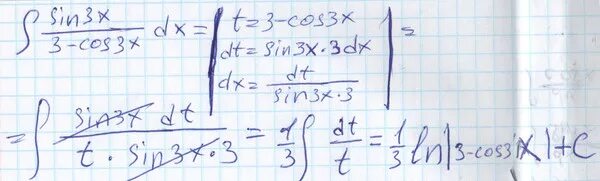 ∫ sin3x / (3-cos3x) dx = | t=3-cos3x
dt=sin3x·3dx
dx= dt / (sin3x·3) | =
= ∫ sin3x dt / (t·sin3x·3) = 1/3 ∫ dt/t = 1/3 ln|3-cos3x|+C